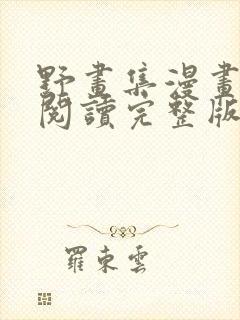 野畫集漫畫
閱讀完整版
羅東雲